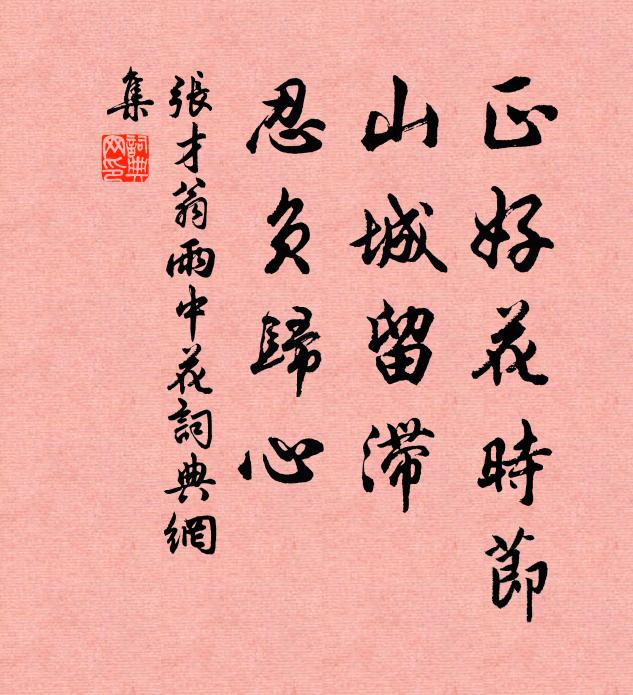 正好花時節
山城留滯
忍負歸心
張才翁雨中花詞典網
集
詞典
網印